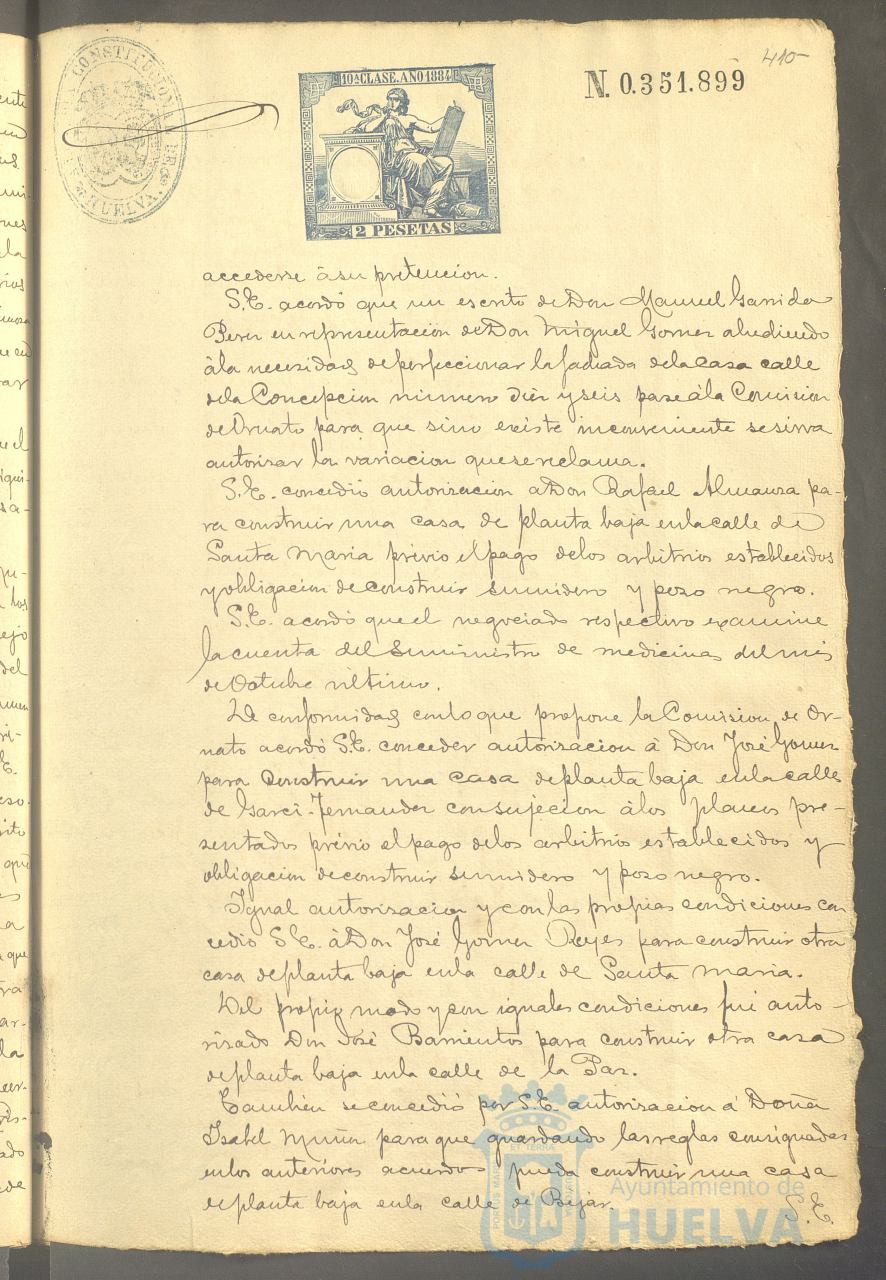 410-
CONSTITUCIONAL DE HUELVA.
10ª CLASE. AÑO 1884
N. 0.351.899
2 PESETAS
accederse à su pretencion.
S.E. acordó que un escrito de Don Manuel Garrido
Perez en representacion de Don Miguel Gomez aludiendo
à la necesidad de perfeccionar la fachada de la casa calle
de la Concepcion número diez y seis pase à la Comision
de Ornato para que sino existe inconveniente se sirva
autorizar la variacion que se reclama.
S.E. concedió autorizacion a Don Rafael Almanza pa-
ra construir una casa de planta baja en la calle de
Santa Maria prévio el pago de los arbitrios establecidos
y obligacion de construir sumidero y pozo negro.
S.E. acordó que el negociado respectivo examine
la cuenta del suministro de medicinas del mes
de Octubre último.
De conformidad con lo que propone la Comision de Or-
nato acordó S.E. conceder autorizacion à Don José Gomez
para construir una casa de planta baja en la calle
de Garci-Fernandez con sujecion à los planos pre-
sentados prévio el pago de los arbitrios establecidos y
obligacion de construir sumidero y pozo negro.
Igual autorizacion y con las propias condiciones con
cedió S.E. à Don José Gomez Reyes para construir otra
casa de planta baja en la calle de Santa Maria.
Del propio modo y con iguales condiciones fué auto-
rizado Don José Barrientos para construir otra casa
de planta baja en la calle de la Paz.
Tambien se concedió por S.E. autorizacion à Doña
Isabel Muñiz para que guardando las reglas consignadas
en los anteriores acuerdos pueda construir una casa
de planta baja en la calle de Bejar.
S.E.
Ayuntamiento de
HUELVA